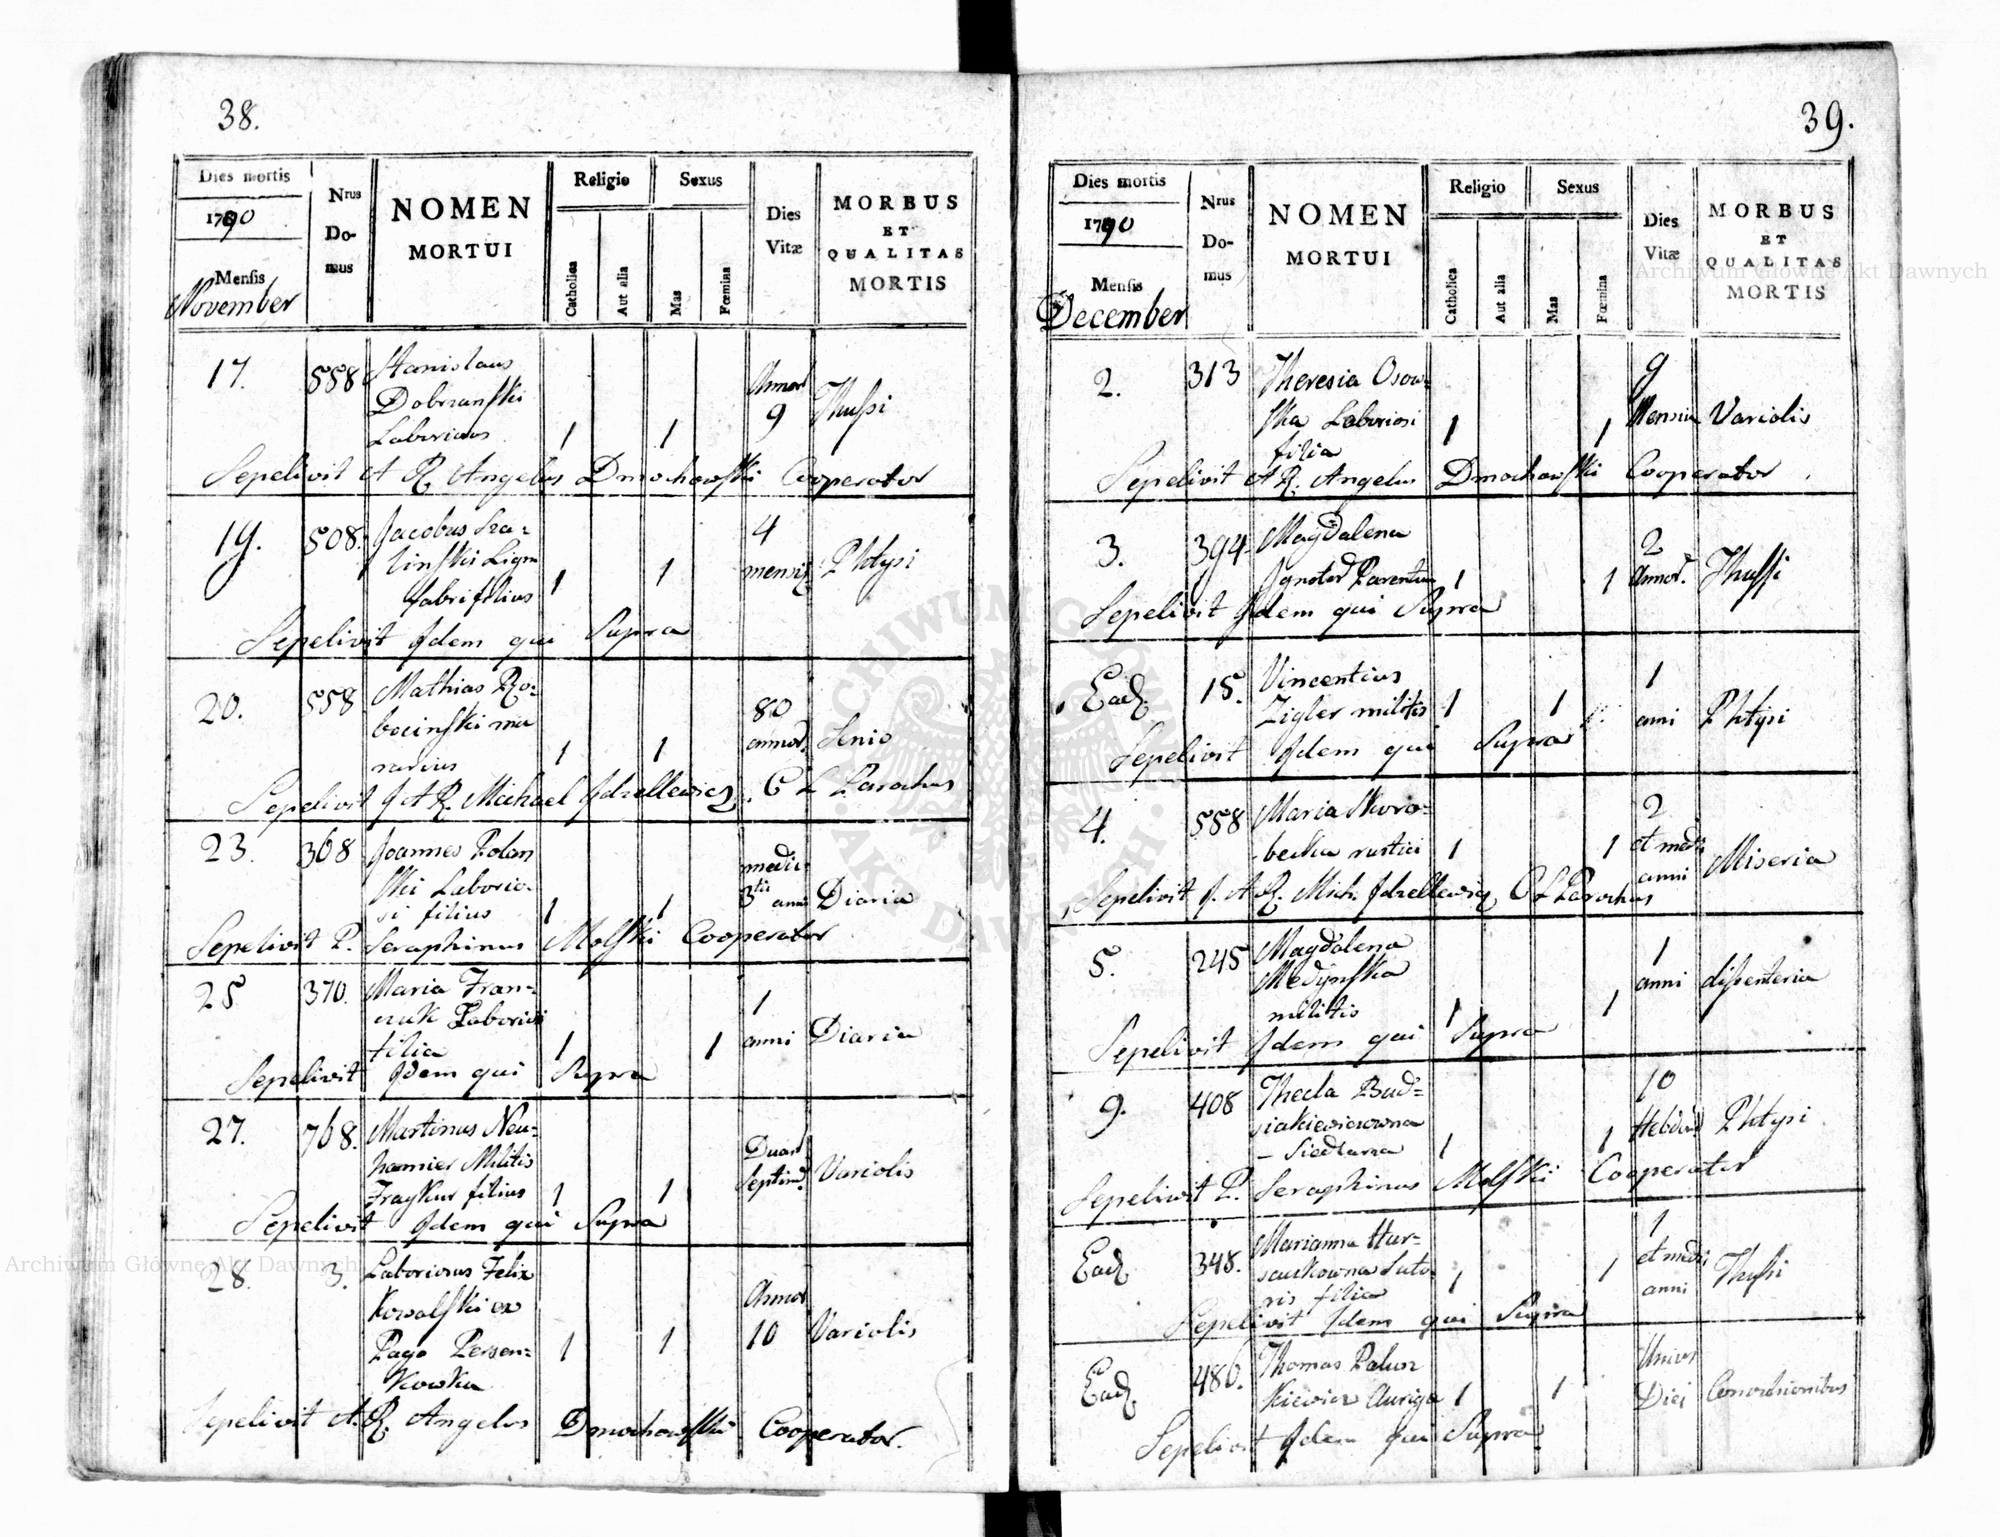 38.
Dies mortis
1790
Mensis
November
Nrus
Do-
mus
NOMEN
MORTUI
Religio
Catholica
Aut alia
Sexus
Mas
Fœmina
Dies
Vitæ
MORBUS
ET
QUALITAS
MORTIS
17. 558 Stanislaus
Dobrzanski
Laboriosus 1 1 Annor
9 Thussi
Sepelivit A R. Angelus Dmochowski Cooperator
19. 508. Jacobus
linski Lign
fabri filius 1 1 4
mensis Phtysi
Sepelivit Idem qui Supra
20. 558 Mathias Ro-
bocinski mu
rarius 1 1 80
annor. Senio
Sepelivit J A R. Michael Idzellewicz C L Parochus
23. 368 Joannes Polan
ski Laborio-
si filius 1 1 medie-
3tii anni Diaria
Sepelivit P. Seraphinus Molski Cooperator
25 370. Maria Fran-
czuk Laboriosi
filia 1 1 1
anni Diaria
Sepelivit Idem qui Supra
27. 768. Martinus Neu-
hamier Militis
Fraykur filius 1 1 Duar
Septim. Variolis
Sepelivit Idem qui Supra
28. 3. Laboriosus Felix
Kowalski ex
Pago Persen-
kowka 1 1 Annor
10 Variolis
Sepelivit A. R. Angelus Dmochowski Cooperator.
39.
Dies mortis
1790
Mensis
December
Nrus
Do-
mus
NOMEN
MORTUI
Religio
Catholica
Aut alia
Sexus
Mas
Fœmina
Dies
Vitæ
MORBUS
ET
QUALITAS
MORTIS
2. 313 Theresia Osow-
ska Laboriosi
filia 1 1 9
Mensium Variolis
Sepelivit A R. Angelus Dmochowski Cooperator.
3. 394 Magdalena
Ignotor Parentum 1 1 2
Annor. Thussi
Sepelivit Idem qui Supra
Ead. 15. Vincentius
Zigler militis 1 1 1
anni Phtysi
Sepelivit Idem qui Supra
4. 558 Maria Skoro-
becka rustici 1 1 2
et medii
anni Miseria
Sepelivit J. A R. Mich. Idzellewicz C L Parochus
5. 245 Magdalena
Medynska
militis 1 1 1
anni dissenteria
Sepelivit Idem qui Supra
9. 408 Thecla Bud-
ziakiewiczowna
- Siedlarza 1 1 10
Hebdod Phtysi
Sepelivit P. Seraphinus Molski Cooperator
Ead. 348. Marianna Hur-
Suto-
ris filia 1 1 1
et medii
anni Thussi
Sepelivit Idem qui Supra
Ead. 486. Thomas Palusz
kiewicz Auriga 1 1 Unius
Diei Convulsionibus
Sepelivit Idem qui Supra
Archiwum Główne Akt Dawnych
Archiwum Główne Akt Dawnych
ARCHIWUM GŁÓWNE
AKT DAWNYCH